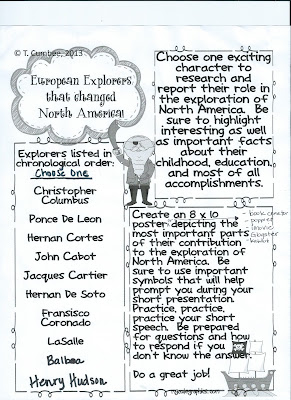 © T. Cumbee, 2013
European Explorers
that changed
North America!
Choose one exciting
character to
research and
report their role in
the exploration of
North America. Be
sure to highlight
interesting as well
as important facts
about their
childhood, education,
and most of all
accomplishments.
Explorers listed in
chronological order:
Choose One
Christopher
Columbus
Ponce De Leon
Hernan Cortes
John Cabot
Jacques Cartier
Hernan De Soto
Fransisco
Coronado
LaSalle
Balboa
Henry Hudson
Create an 8 x 10
poster depicting the
most important parts
of their contribution
to the exploration of
North America. Be
sure to use important
symbols that will help
prompt you during your
short presentation.
Practice, practice,
practice your short
speech. Be prepared
for questions and how
to respond if you
don't know the answer.
Do a great job!